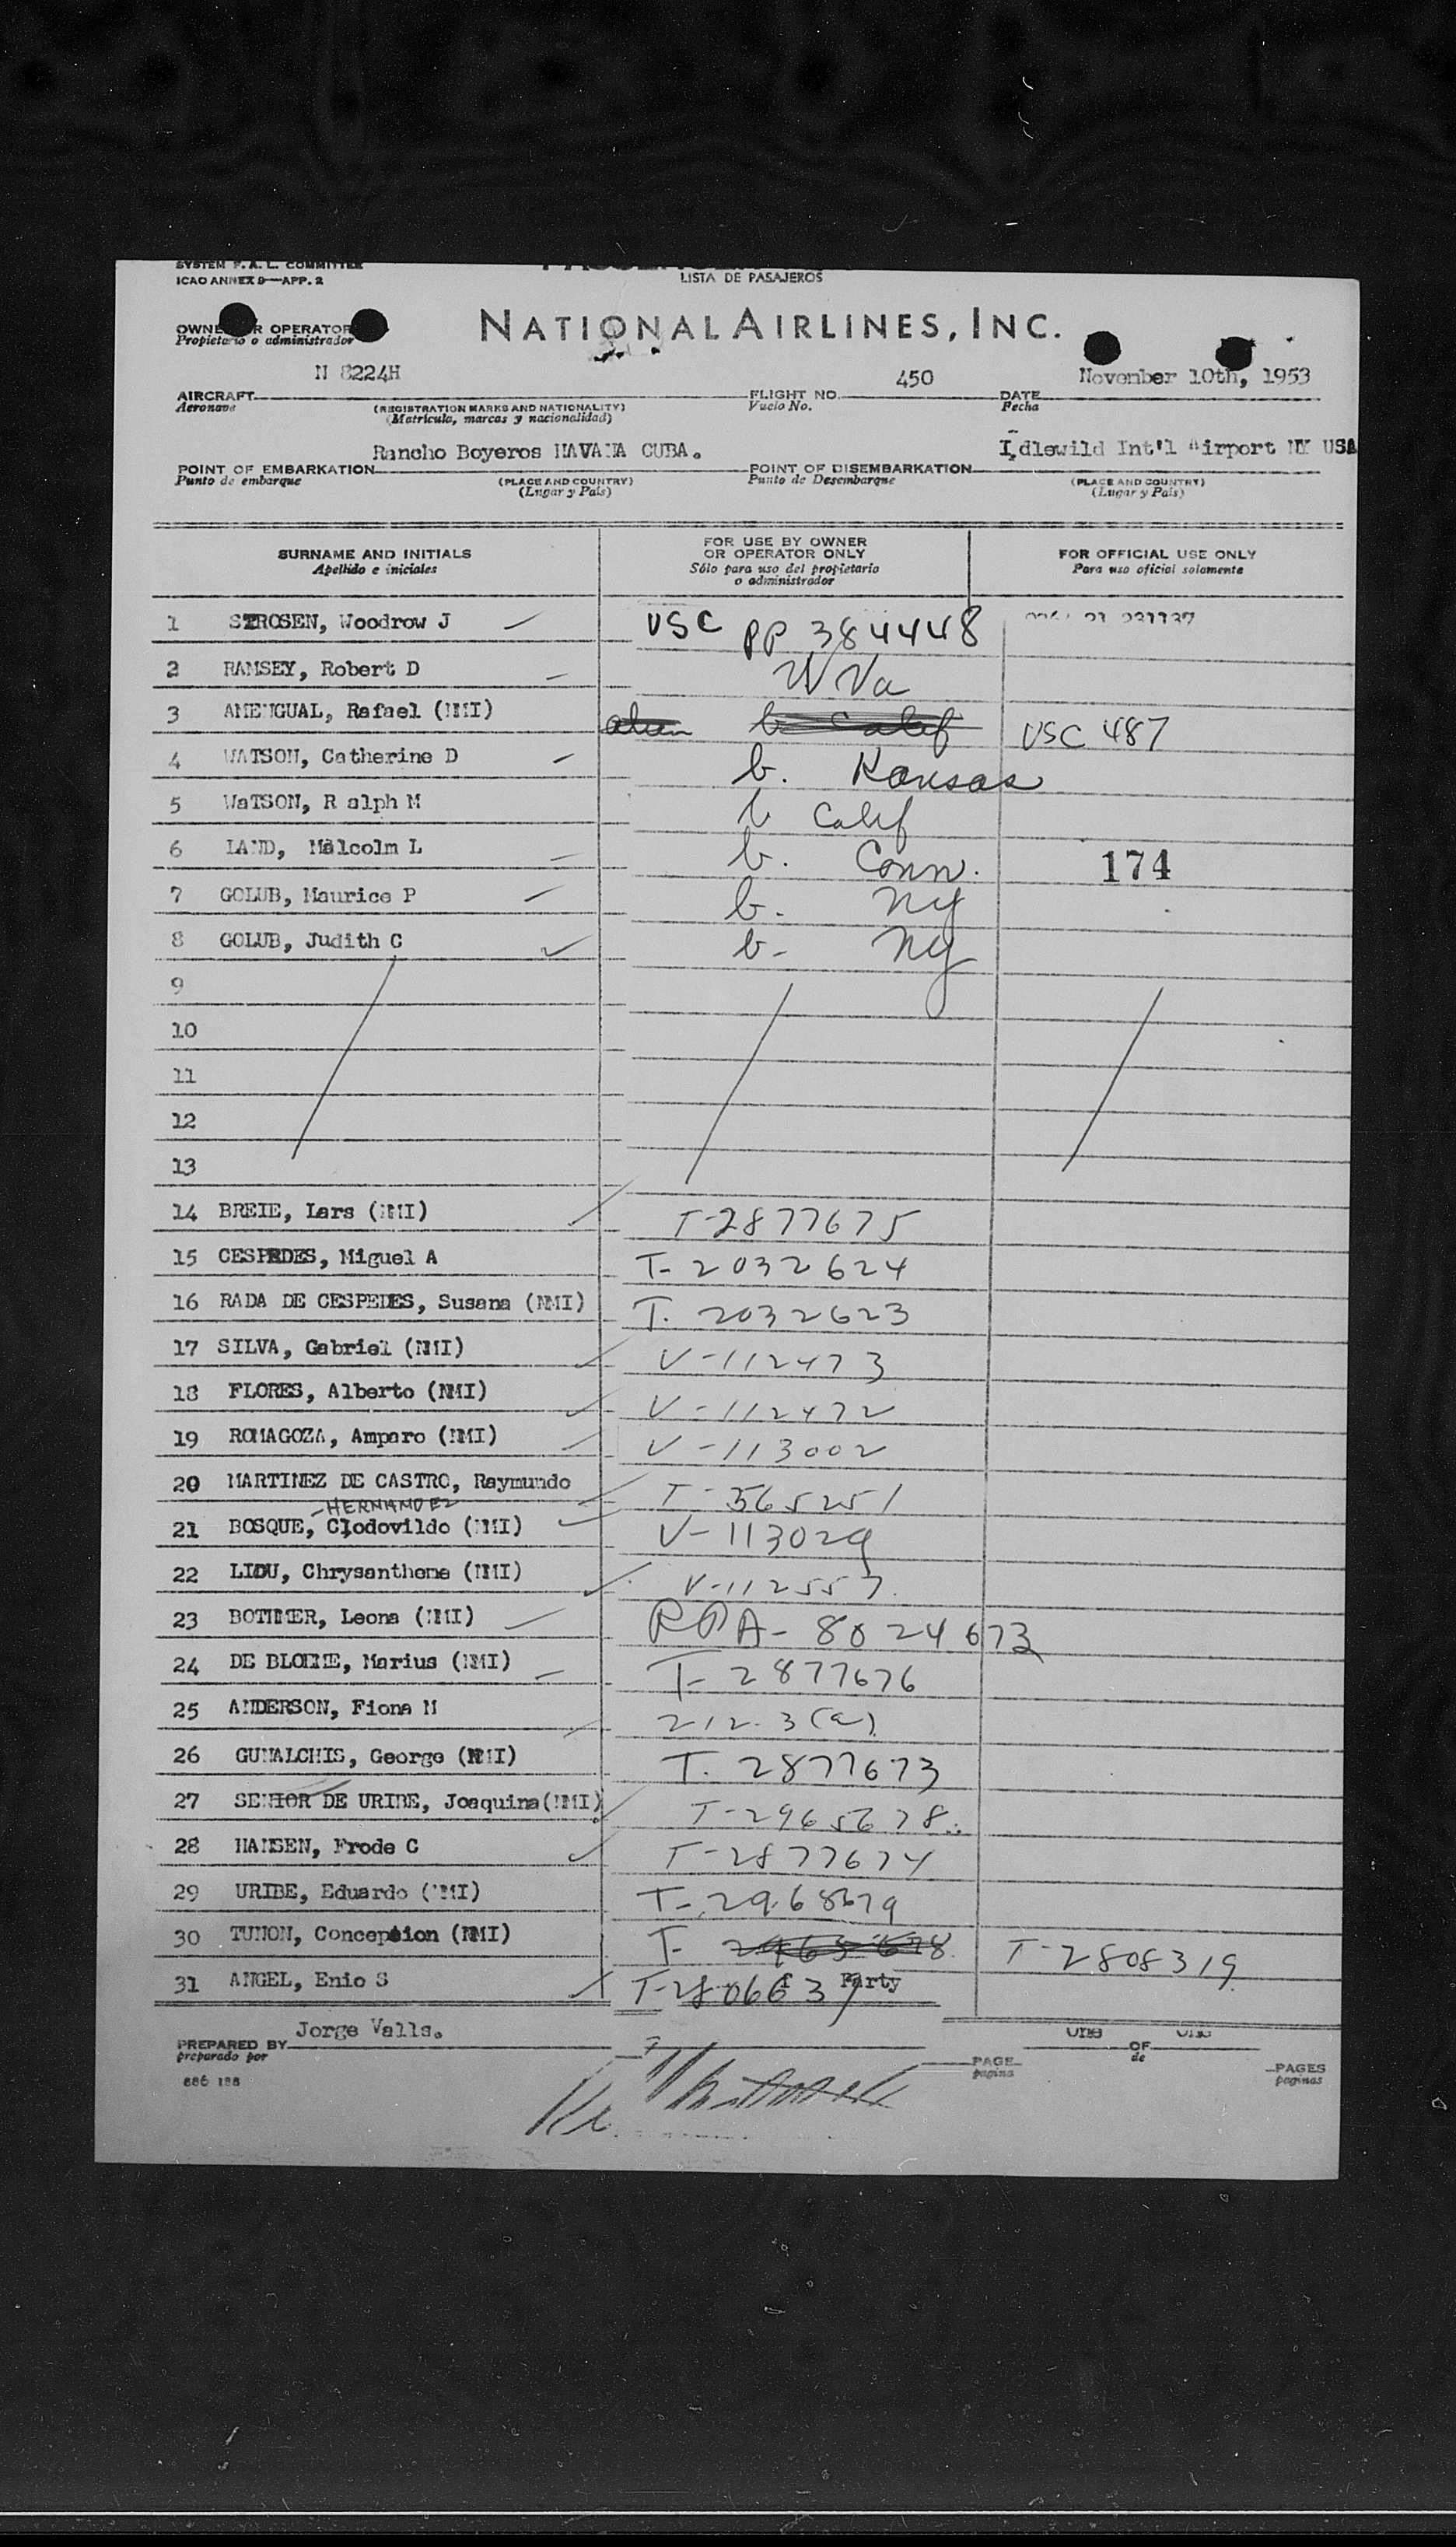 SYSTEM F. A. L. COMMITTEE
ICAO ANNEX 9—APP. 2
LISTA DE PASAJEROS
OWNER OR OPERATOR
Propietario o administrador
NATIONAL AIRLINES, INC.
N 8224H 450 November 10th, 1953
AIRCRAFT FLIGHT NO. DATE
Aeronave (REGISTRATION MARKS AND NATIONALITY) Vuelo No. Fecha
(Matrícula, marcas y nacionalidad)
Rancho Boyeros HAVANA CUBA. Idlewild Int'l Airport NY USA
POINT OF EMBARKATION POINT OF DISEMBARKATION
Punto de embarque (PLACE AND COUNTRY) Punto de Desembarque (PLACE AND COUNTRY)
(Lugar y País) (Lugar y País)
SURNAME AND INITIALS
Apellido e iniciales
FOR USE BY OWNER
OR OPERATOR ONLY
Sólo para uso del propietario
o administrador
FOR OFFICIAL USE ONLY
Para uso oficial solamente
1 STROSEN, Woodrow J USC PP 384448
2 RAMSEY, Robert D W Va
3 AMENGUAL, Rafael (NMI) alien b Calif USC 487
4 WATSON, Catherine D b. Kansas
5 WaTSON, R alph M b Calif
6 LAND, Malcolm L b. Conn. 174
7 GOLUB, Maurice P b. NY
8 GOLUB, Judith C b- NY
9
10
11
12
13
14 BREIE, Lars (NMI) T-2877675
15 CESPEDES, Miguel A T- 2032624
16 RADA DE CESPEDES, Susana (NMI) T. 2032623
17 SILVA, Gabriel (NMI) V-112473
18 FLORES, Alberto (NMI) V-112472
19 ROMAGOZA, Amparo (NMI) V-113002
20 MARTINEZ DE CASTRO, Raymundo T-365251
-HERNANDEZ
21 BOSQUE, Clodovildo (NMI) V-113029
22 LIDU, Chrysantheme (NMI) V-112557
23 BOTIMER, Leona (NMI) RPA- 8024673
24 DE BLOEME, Marius (NMI) T- 2877676
25 ANDERSON, Fiona M 212.3(a)
26 GUNALCHIS, George (NMI) T. 2877673
27 SENIOR DE URIBE, Joaquina(NMI) T-2965678
28 HANSEN, Frode C T-2877674
29 URIBE, Eduardo (NMI) T-2968679
30 TUNON, Concepcion (NMI) T- 2965678 T-2808319
31 ANGEL, Enio S T-2806637 Party
Jorge Valls.
PREPARED BY
preparado por
One One
PAGE OF PAGES
pagina de paginas